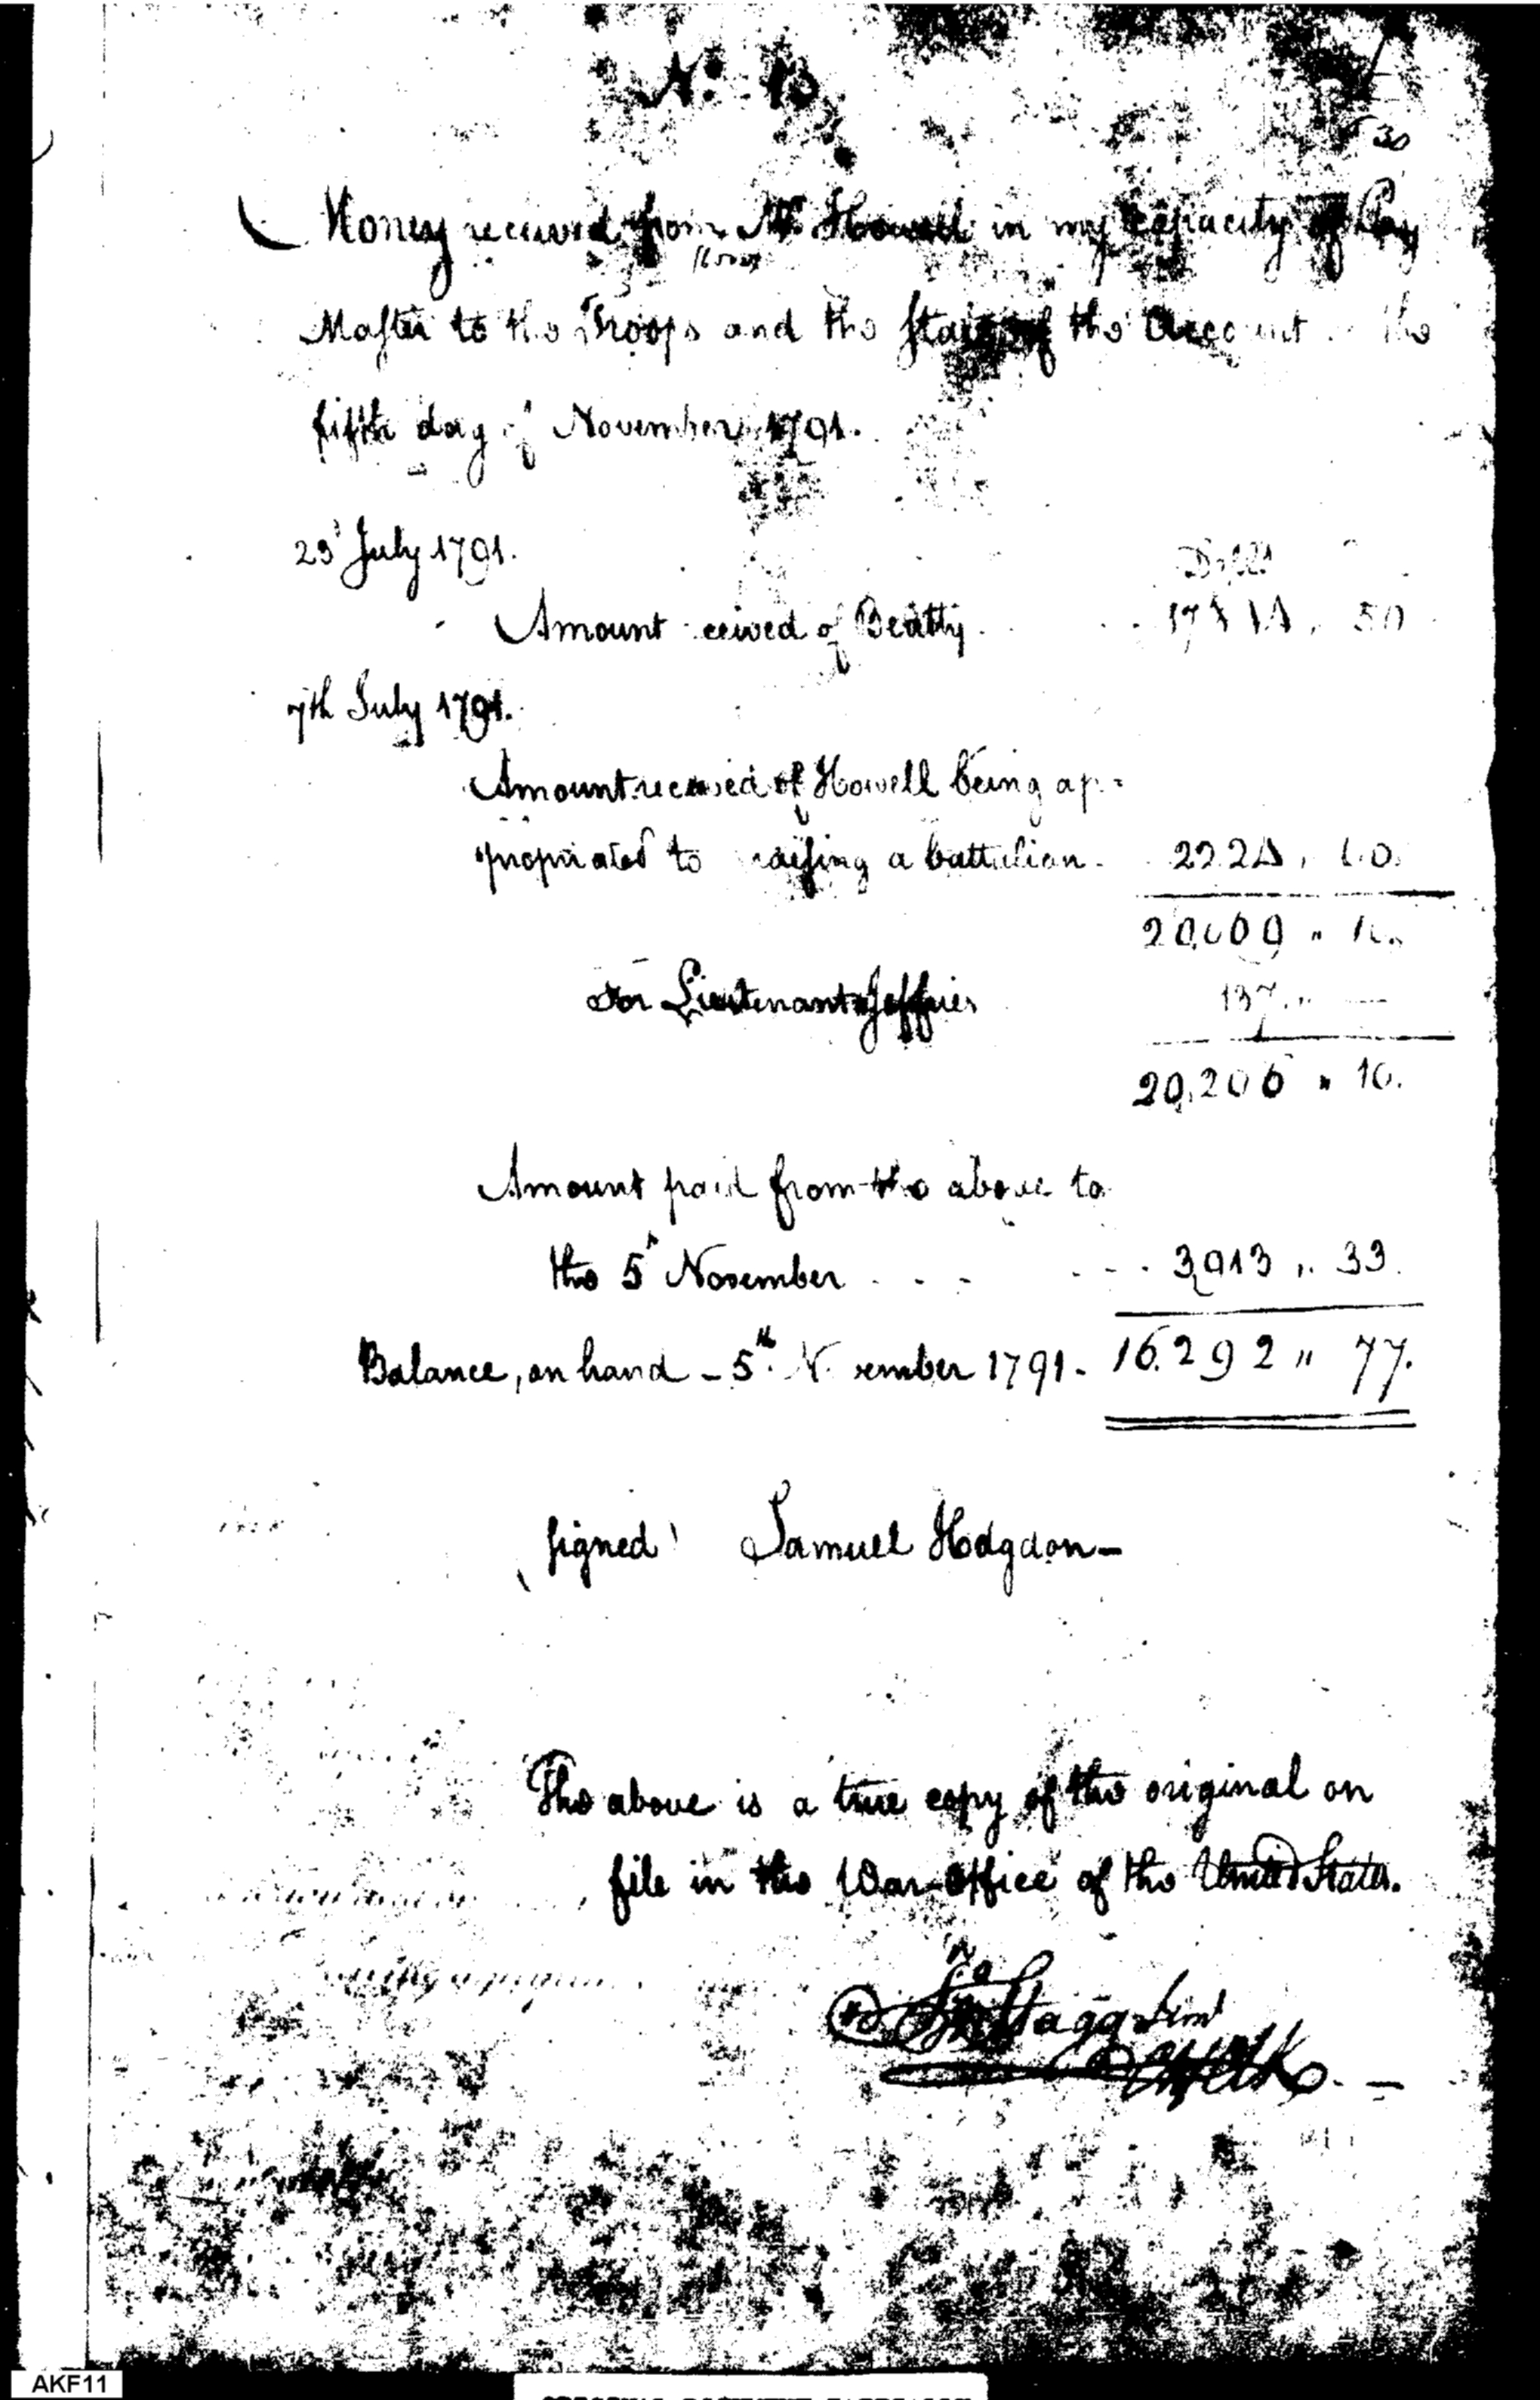 No. 13
30
Money received from Mr. Howell in my capacity of Pay
Master to the Troops and the State of the Account the
fifth day of November 1791.
23d July 1791.
Dolls
Amount ceived of Beatty 50
7th July 1791.
Amount received of Howell being ap-
propriated to raising a battalion 2224 " 60.
For Lieutenant Jeffries 137 " —
20,206 " 10.
Amount paid from the above to
the 5th November - - - 3,913 " 33.
Balance, on hand - 5th. N ember 1791. 16.292 " 77.
signed Samuel Hodgdon-
The above is a true copy of the original on
file in the War-office of the United States.
Jno Stagg Junr
AKF11